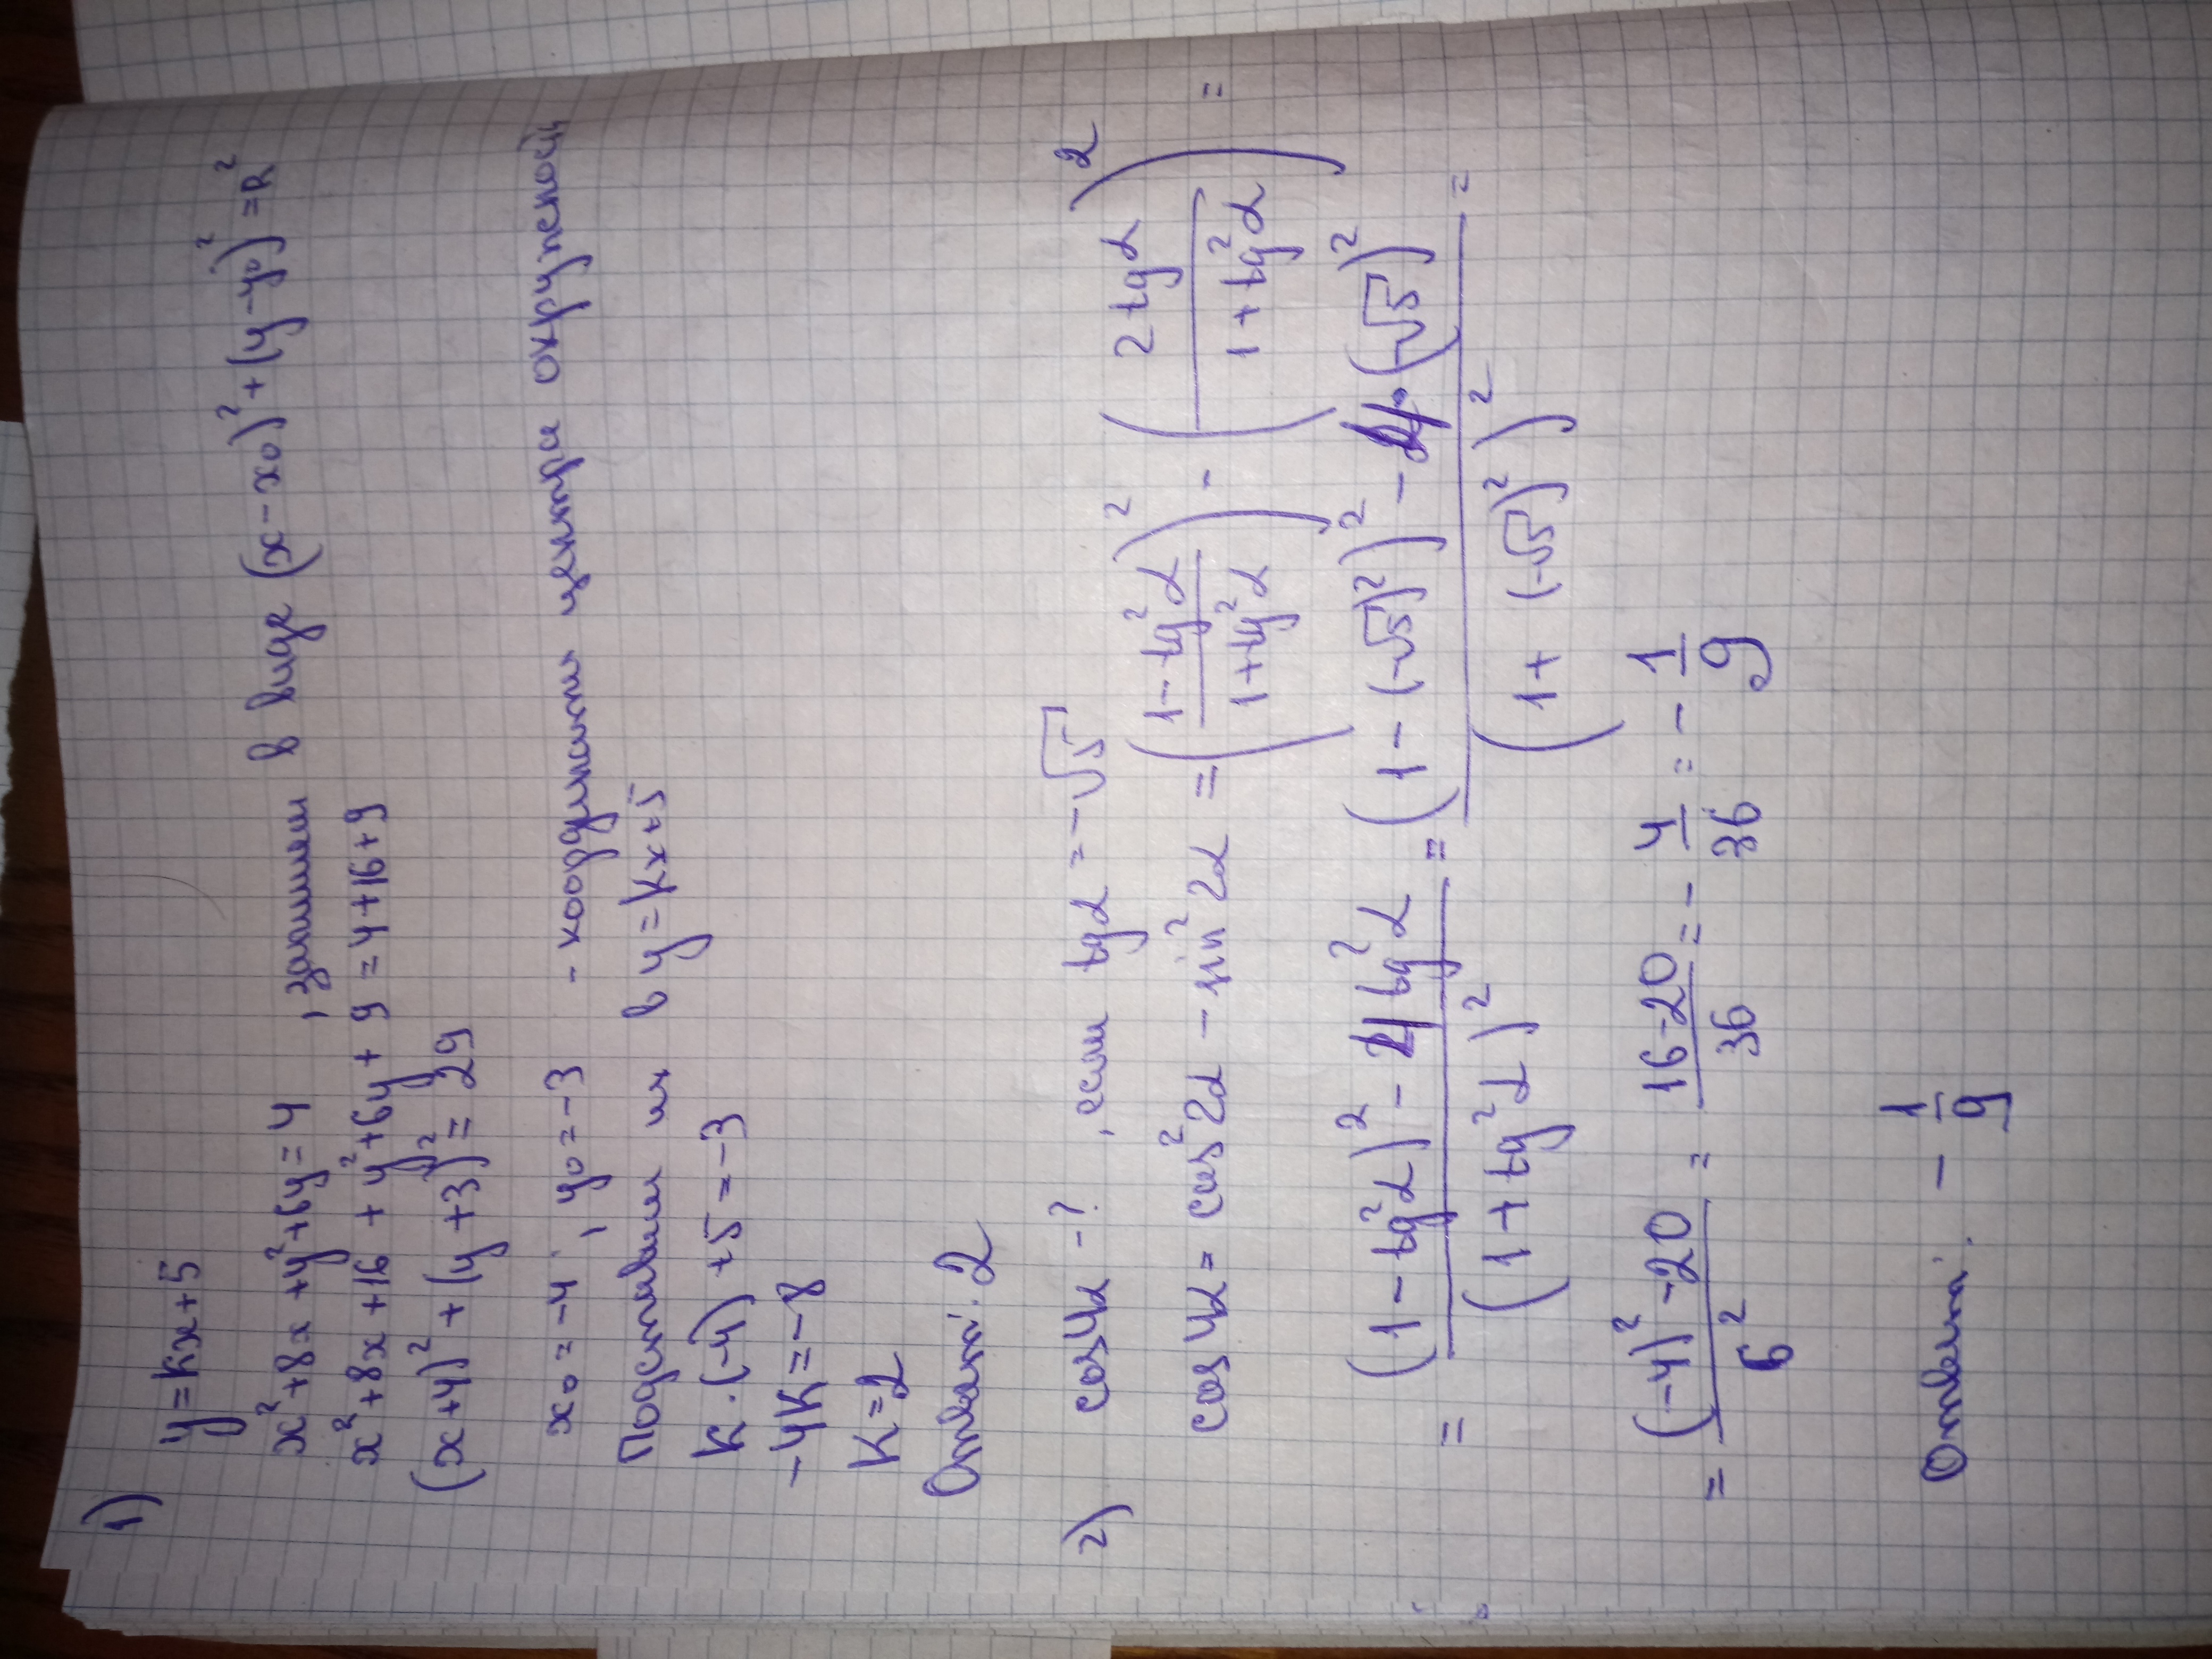 1)
y = kx+5
x²+8x+y²+6y=4 , запишем в виде (x-x₀)²+(y-y₀)²=R²
x²+8x+16+y²+6y+9=4+16+9
(x+4)²+(y+3)²=29
x₀=-4 , y₀=-3 - координаты центра окружности
Подставим их в y=kx+5
k·(-4)+5=-3
-4k=-8
k=2
Ответ: 2
2) cos4α-? , если tgα=-√5
cos4α=cos²2α-sin²2α=((1-tg²α)/(1+tg²α))²-((2tgα)/(1+tg²α))²=
=((1-tg²α)²-4tg²α)/(1+tg²α)²=((1-(-√5)²)²-4·(-√5)²)/(1+(-√5)²)²=
=((-4)²-20)/6²=(16-20)/36=-4/36=-1/9
Ответ: -1/9